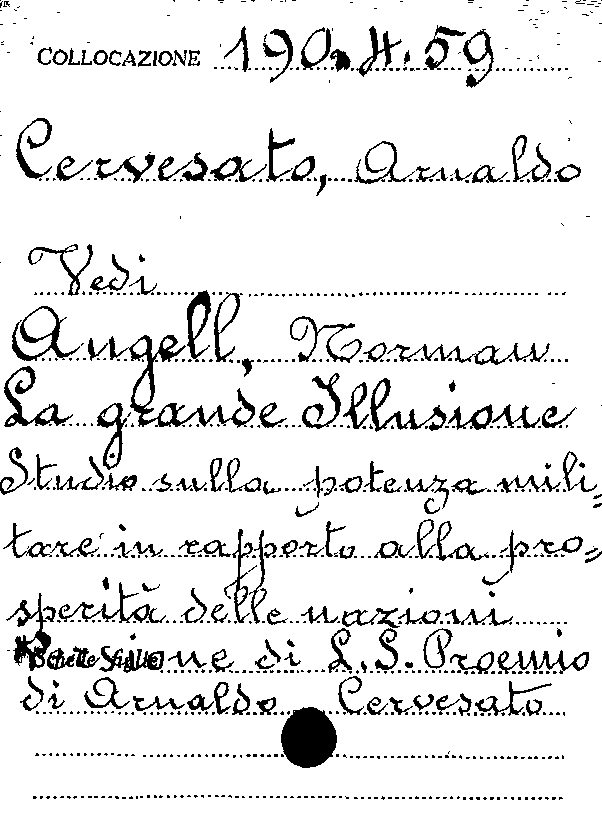 COLLOCAZIONE 190.H.59
Cervesato, Arnaldo
Vedi
Angell, Norman
La grande Illusione
Studio sulla potenza mili=
tare in rapporto alla pro=
sperità delle nazioni
di L. S. Proemio
di Arnaldo Cervesato